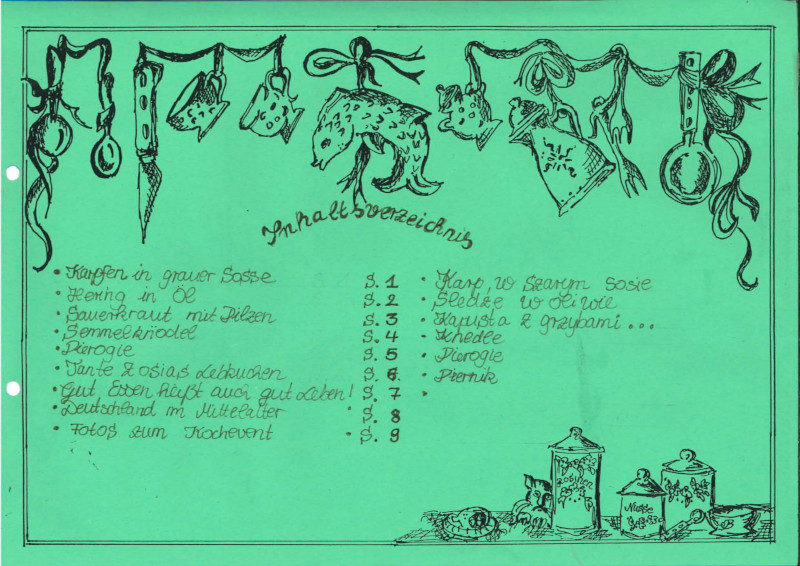 Inhaltsverzeichnis
• Karpfen in grauer Sosse S. 1 • Karp, w szarym sosie
• Hering in Öl S. 2 • Śledże w oliwie
• Sauerkraut mit Pilzen S. 3 • Kapusta z grzybami...
• Semmelknödel S. 4 • Knedle
• Pierogie S. 5 • Pierogie
• Tante Zosias Lebkuchen S. 6. • Piernik
• Gut Essen heißt auch gut Leben! S. 7 •
• Deutschland im Mittelalter S. 8
• Fotos zum Kochevent • S. 9
Nüsse